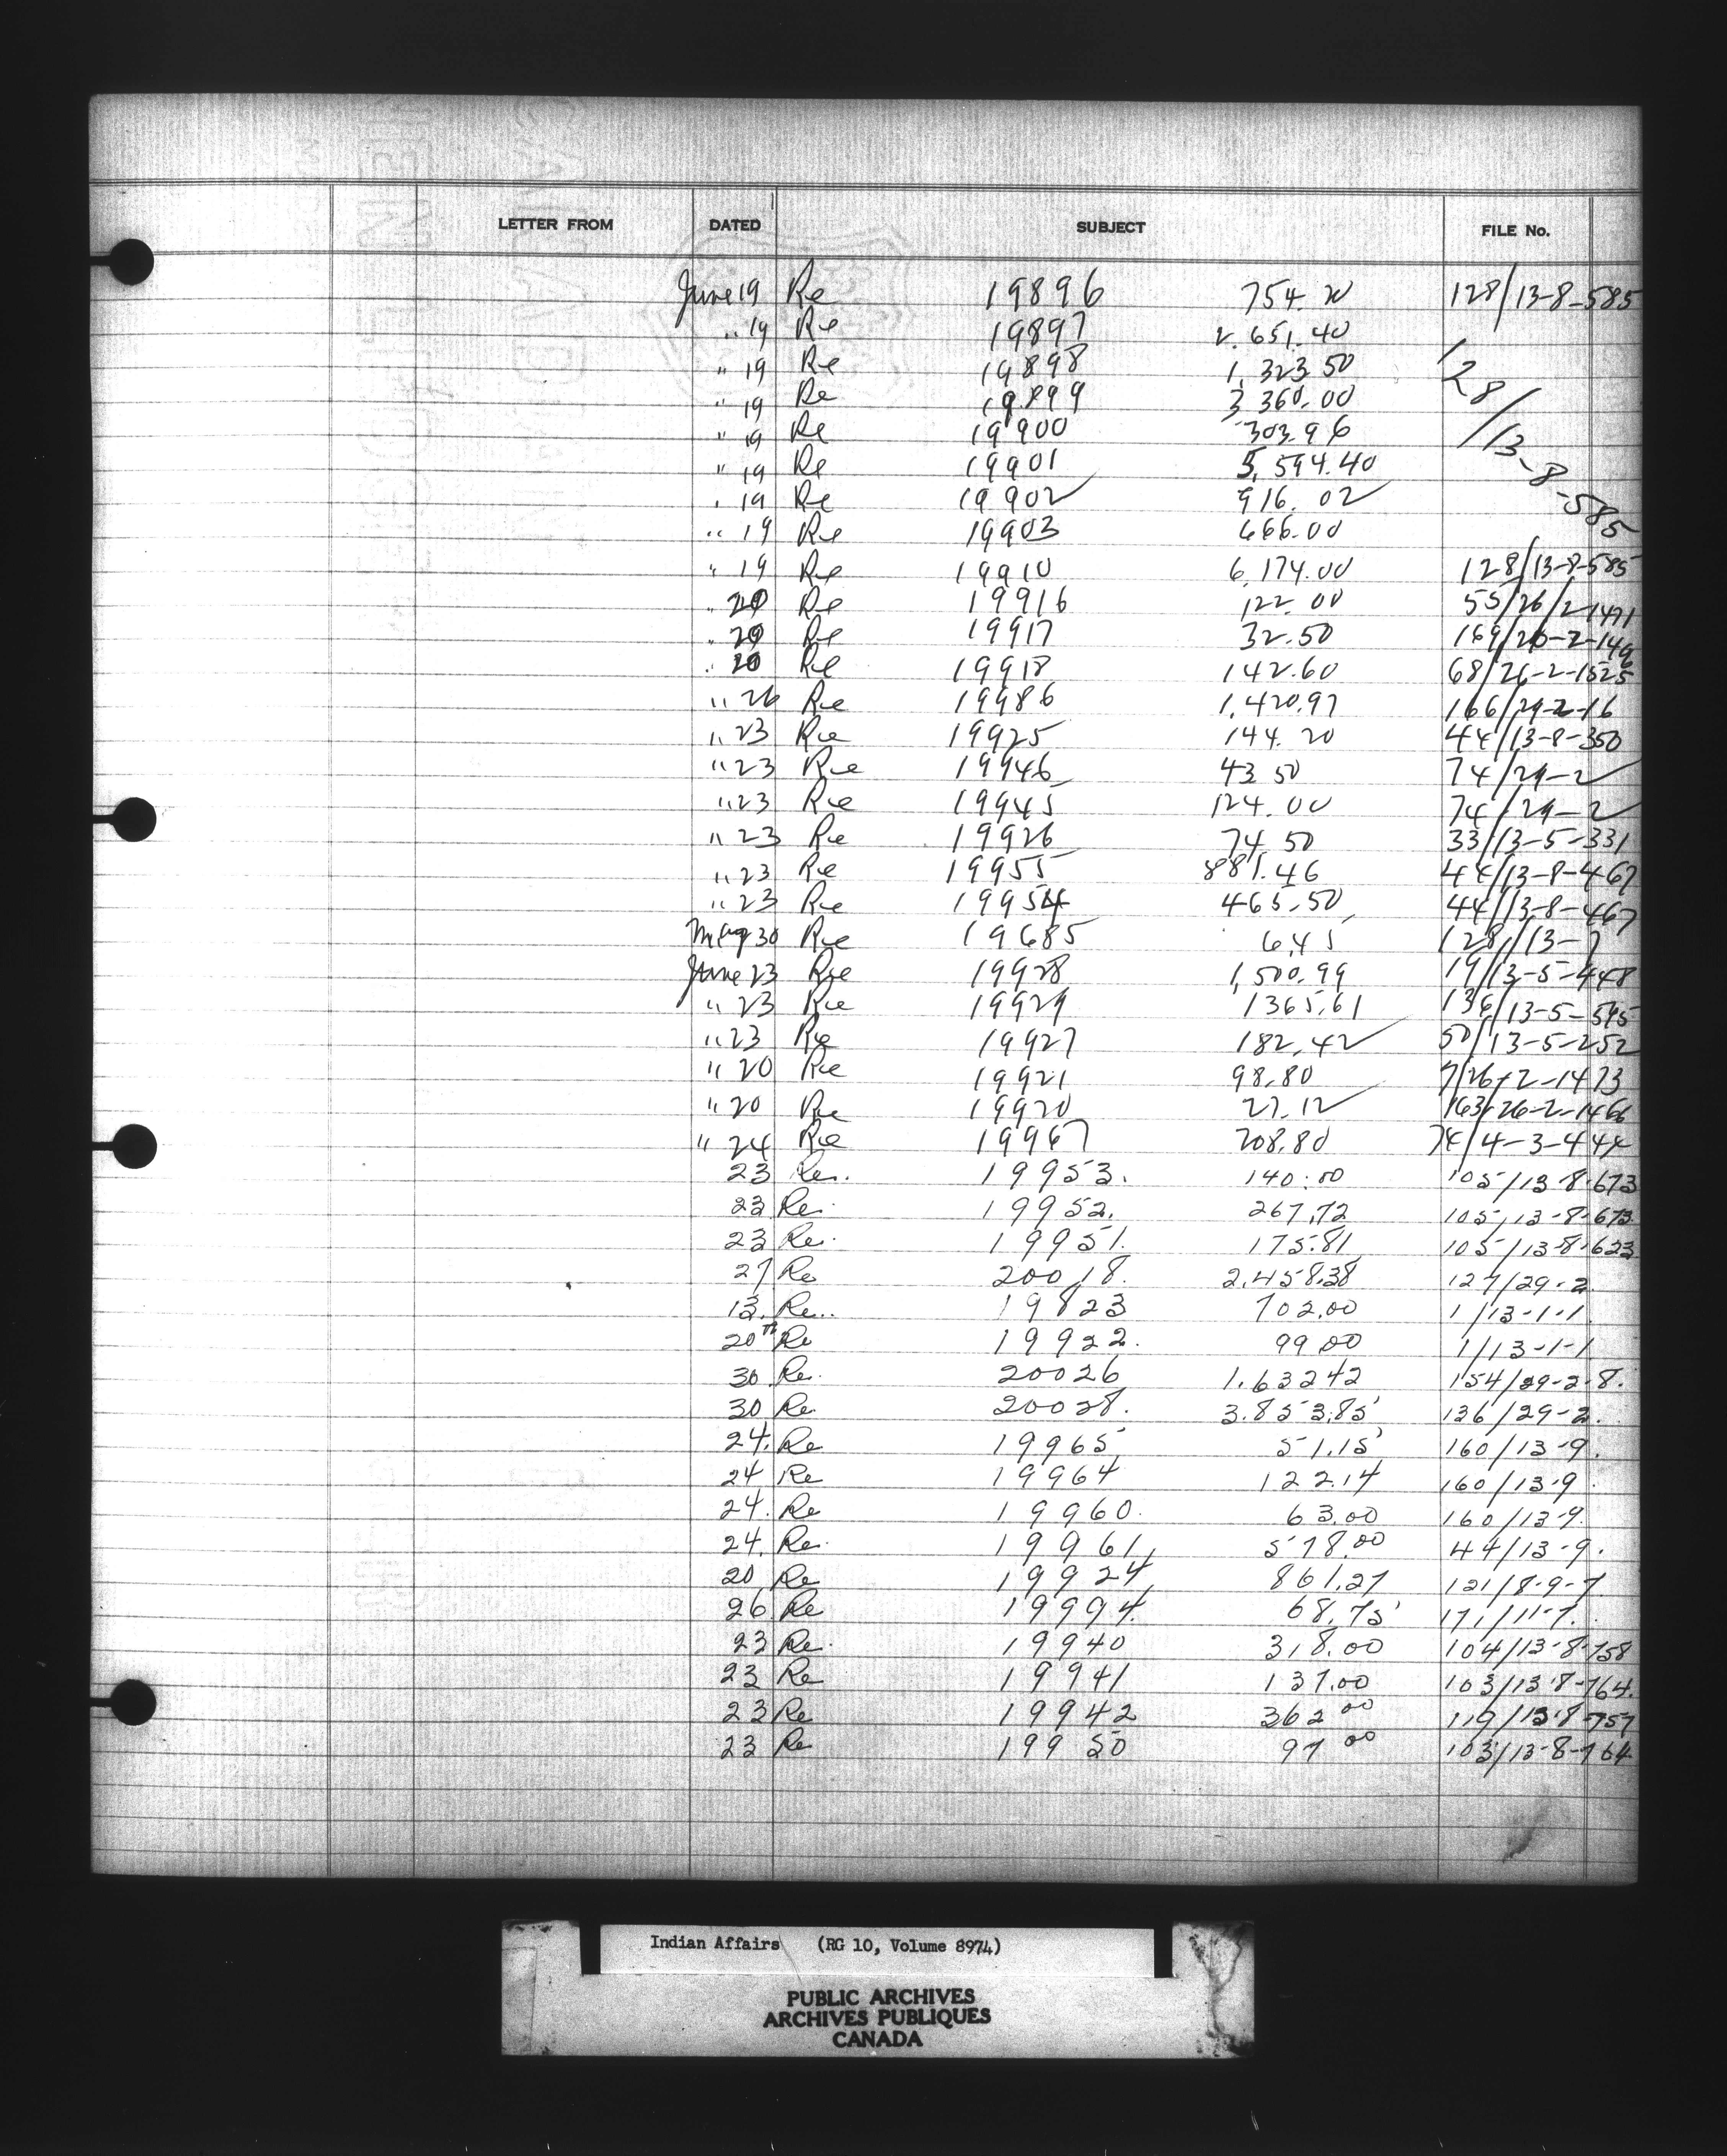 LETTER FROM DATED SUBJECT FILE No.
June 19 Re 19896 754.20 128/13-8-585
" 19 Re 19897 2.651.40
" 19 Re 19898 1,323.50
" 19 Re 19899 3 360.00
" 19 Re 19900 303.96
" 19 Re 19901 5,594.40
" 19 Re 19902 916.02
128/13-8-585
" 19 Re 19903 666.00
" 19 Re 19910 6,174.00 128/13-8-585
" 20 Re 19916 122.00 55/26/2-1471
" 20 Re 19917 32.50 169/26-2-149
" 20 Re 19918 142.60 68/26-2-1525
" 26 Re 19986 1,420.97 166/29-2-16
" 23 Re 19925 144.20 44/13-8-350
" 23 Re 19946 43 50 74/29-2
" 23 Re 19945 124.00 74/29-2
" 23 Re 19926 74 50 33/13-5-331
" 23 Re 19955 881.46 44/13-8-467
" 23 Re 19954 465.50 44/13-8-467
May 30 Re 19685 6.45 128/13-7
June 23 Re 19928 1,500.99 19/13-5-448
" 23 Re 19929 1365.61 136/13-5-595
" 23 Re 19927 182.42 50/13-5-252
" 20 Re 19921 98.80 7/26-2-1473
" 20 Re 19920 27.12 163/26-2-1466
" 24 Re 19967 208.80 74/4-3-444
23 Re. 19953. 140.00 105/13-8-673
23 Re. 19952. 267.72 105/13-8-673
23 Re. 19951. 175.81 105/13-8-623
27 Re 20018. 2.458.38 127/29-2
13. Re.. 19823 702.00 1/13-1-1
20th Re 19922. 99.00 1/13-1-1
30 Re. 20026 1.63242 154/29-2-8.
30 Re 20028. 3.853.85 136/29-2.
24. Re 19965 51.15 160/13-9.
24 Re 19964 122.14 160/13-9.
24. Re 19960. 63.00 160/13-9.
24. Re. 19961, 578.00 44/13-9.
20 Re 19924, 861.27 121/8-9-7
26 Re 19994. 68.75 171/11-7.
23 Re. 19940 318.00 104/13-8-758
23 Re 19941 137.00 103/13-8-764.
23 Re 19942 362 00 119/13-8-757
23 Re 19950 97 00 103/13-8-764
Indian Affairs (RG 10, Volume 8974)
PUBLIC ARCHIVES
ARCHIVES PUBLIQUES
CANADA